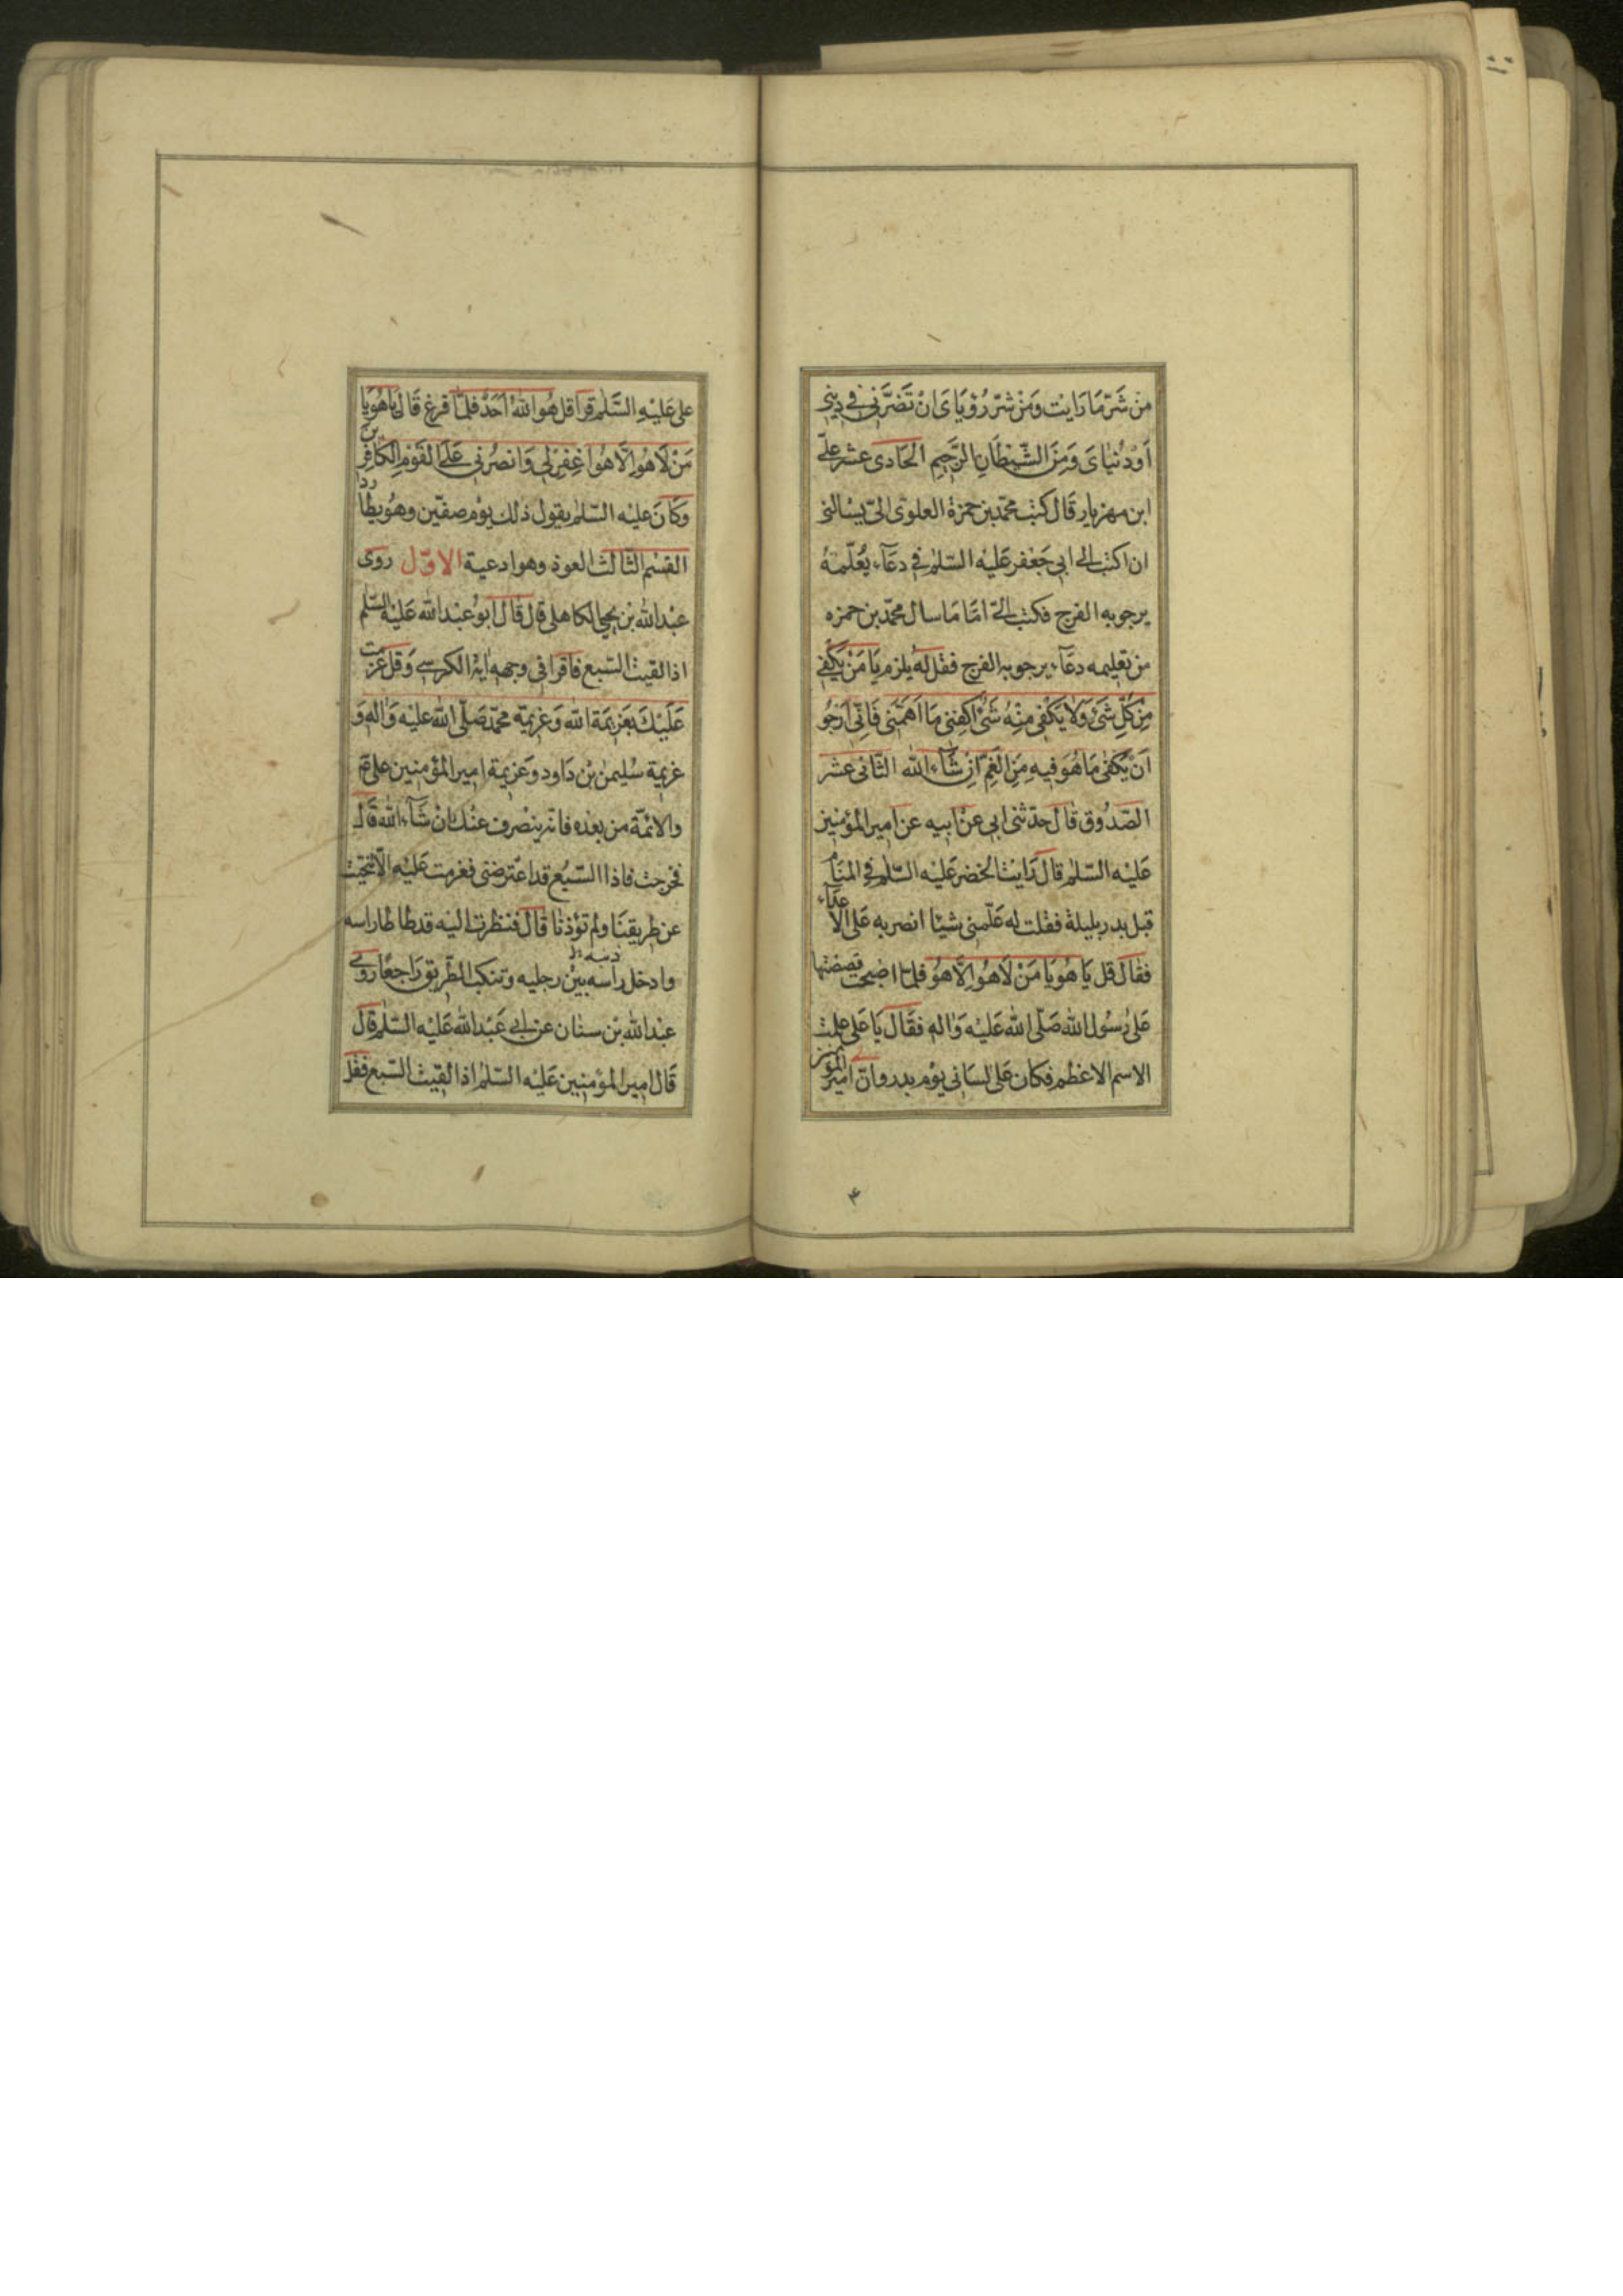 من شر ما رایت و من شر رؤیای ان تضرنی فی دینی
او دنیای و من الشیطان الرجیم الحادی عشر علی
ابن مهزیار قال کتب محمد بن حمزة العلوی الی یسالنی
ان اکتب الی ابی جعفر علیه السلم فی دعاء یعلمه
یرجو به الفرج فکتب الی اما ما سال محمد بن حمزه
من تعلیمه دعاء یرجو به الفرج فقل له یلزم یا من یکفی
من کل شئ ولا یکفی منه شئ اکفنی ما اهمنی فانی ارجو
ان یکفی ما هو فیه من الغم ان شاء الله الثانی عشر
الصدوق قال حدثنی ابی عن ابیه عن امیر المؤمنین
علیه السلم قال رایت الخضر علیه السلم فی المنام
قبل بدر بلیلة فقلت له علمنی شیئا انصر به علی الاعداء
فقال قل یا هو یا من لا هو الا هو فلما اصبحت قصصتها
علی رسول الله صلی الله علیه واله فقال یا علی علمت
الاسم الاعظم فکان علی لسانی یوم بدر وان امیر المؤمنین
۴
علی علیه السلم قرا قل هو الله احد فلما فرغ قال یا هو یا
من لا هو الا هو اغفر لی وانصرنی علی القوم الکافرین
وکان علیه السلم یقول ذلک یوم صفین وهو یطارد
القسم الثالث العوذ وهو ادعیة الاول روی
عبد الله بن یحیی الکاهلی قال قال ابو عبد الله علیه السلم
اذا لقیت السبع فاقرا فی وجهه ایة الکرسی وقل عزمت
علیک بعزیمة الله وعزیمة محمد صلی الله علیه واله و
عزیمة سلیمن بن داود وعزیمة امیر المؤمنین علی ع
والائمة من بعده فانه ینصرف عنک ان شاء الله قال
فخرجت فاذا السبع قد اعترضنی فعزمت علیه الا تنحیت
عن طریقنا ولم تؤذنا قال فنظرت الیه قد طاطا راسه
وادخل راسه بین رجلیه وتنکب الطریق راجعا روی
عبد الله بن سنان عن ابی عبد الله علیه السلم قال
قال امیر المؤمنین علیه السلم اذا لقیت السبع فقل